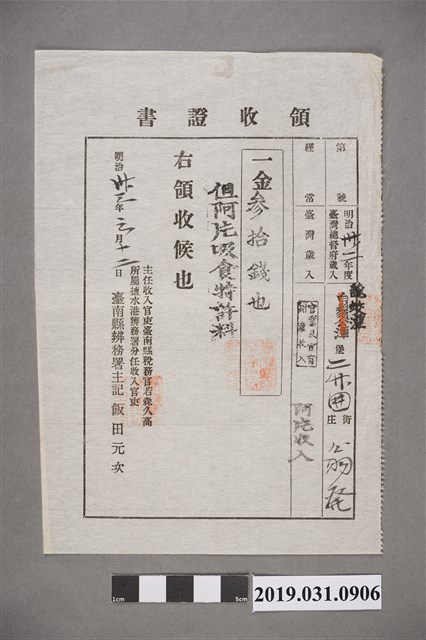 領收證書
第 號 明治卅二年度臺灣總督府歲入
鹽水潭堡二廿四街庄 翁
經常 臺灣歲入
官業及官有財產收入
阿片收入
一金參拾錢也
但阿片吸食特許料
右領收候也
明治卅三年三月十二日
主任收入官吏臺南縣稅務官若森久高
所屬鹽水港辨務署分任收入官吏
臺南縣辨務署主記 飯田元次
1cm 5cm
2019.031.0906